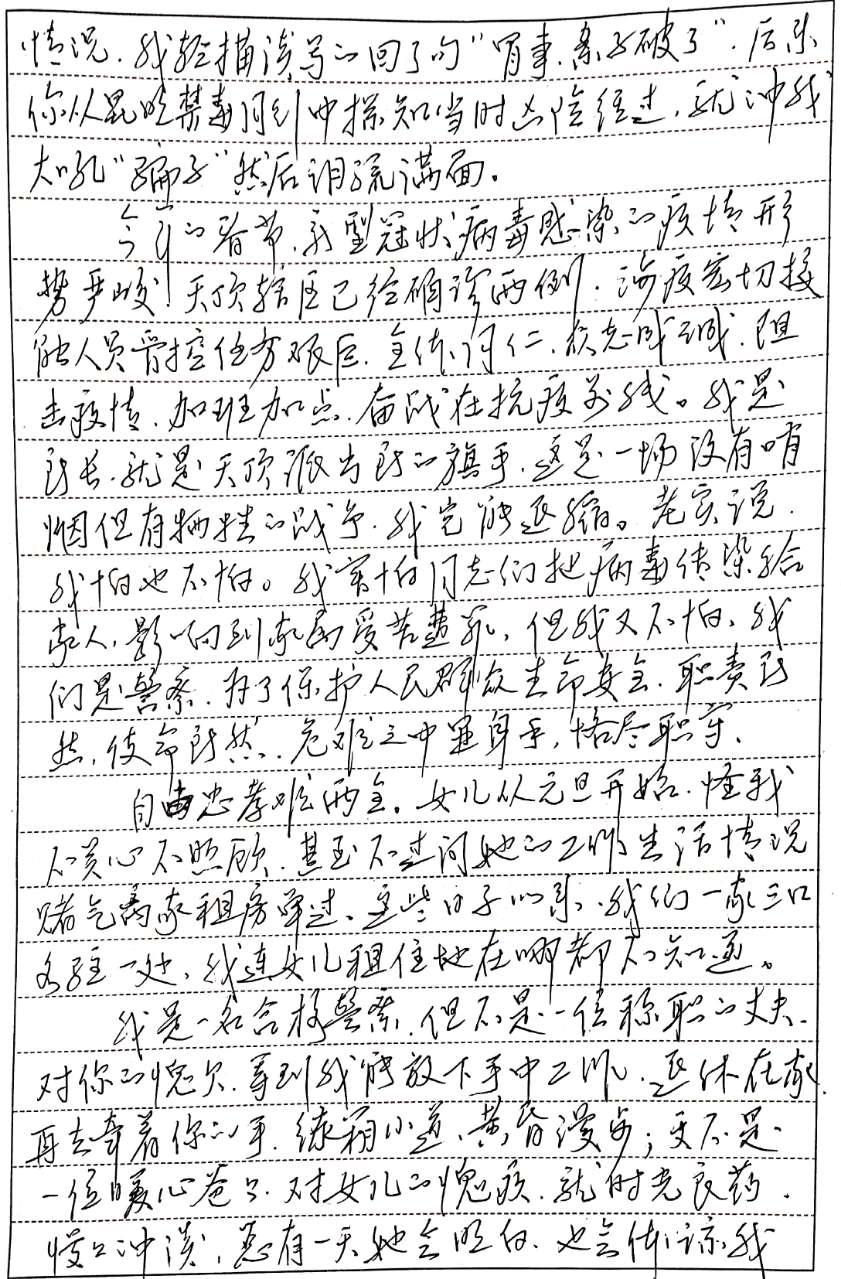 情况，我轻描淡写的回了句“冒事，案子破了”，后来
你从昆明禁毒同行中探知当时凶险经过，就冲我
大吼“骗子”然后泪流满面。
今年的春节，新型冠状病毒感染的疫情形
势严峻！天顶辖区已经确诊两例，涉疫密切接
触人员管控任务艰巨，全体同仁，众志成城，阻
击疫情，加班加点，奋战在抗疫前线。我是
所长，就是天顶派出所的旗手，这是一场没有硝
烟但有牺牲的战争，我岂能退缩。老实说，
我怕也不怕。我害怕同志们把病毒传染给
家人，影响到家属受苦遭罪，但我又不怕，我
们是警察，为了保护人民群众生命安全，职责所
然，使命所然，危难之中显身手，恪尽职守、
自古忠孝难两全。女儿从元旦开始，怪我
不关心不照顾，甚至不过问她的工作生活情况
赌气离家租房单过、这些日子以来，我们一家三口
各驻一处，我连女儿租住地在哪都不知道。
我是一名合格警察，但不是一位称职的丈夫，
对你的愧欠，等到我能放下手中工作，退休在家，
再去牵着你的手，绿荫小道、黄昏漫步；更不是
一位暖心爸爸，对女儿的愧疚，就时光良药，
慢慢冲淡，总有一天她会明白，也会体谅我